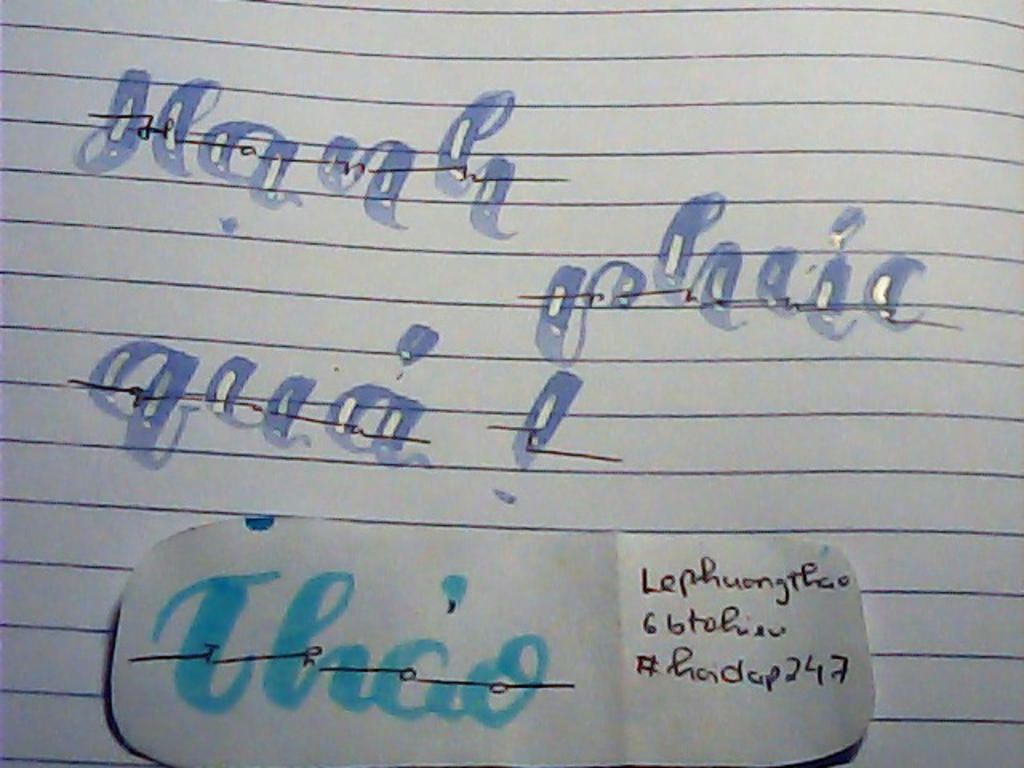 Hạnh
phúc
quá !
Thảo
Lephuongthao
6btohieu
#hoidap247